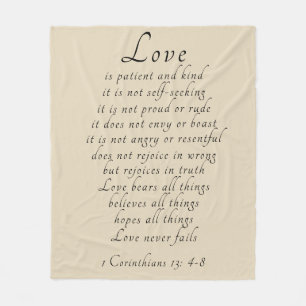 Love
is patient and kind
it is not self-seeking
it is not proud or rude
it does not envy or boast
it is not angry or resentful
does not rejoice in wrong
but rejoices in truth
Love bears all things
believes all things
hopes all things
Love never fails
1 Corinthians 13: 4-8